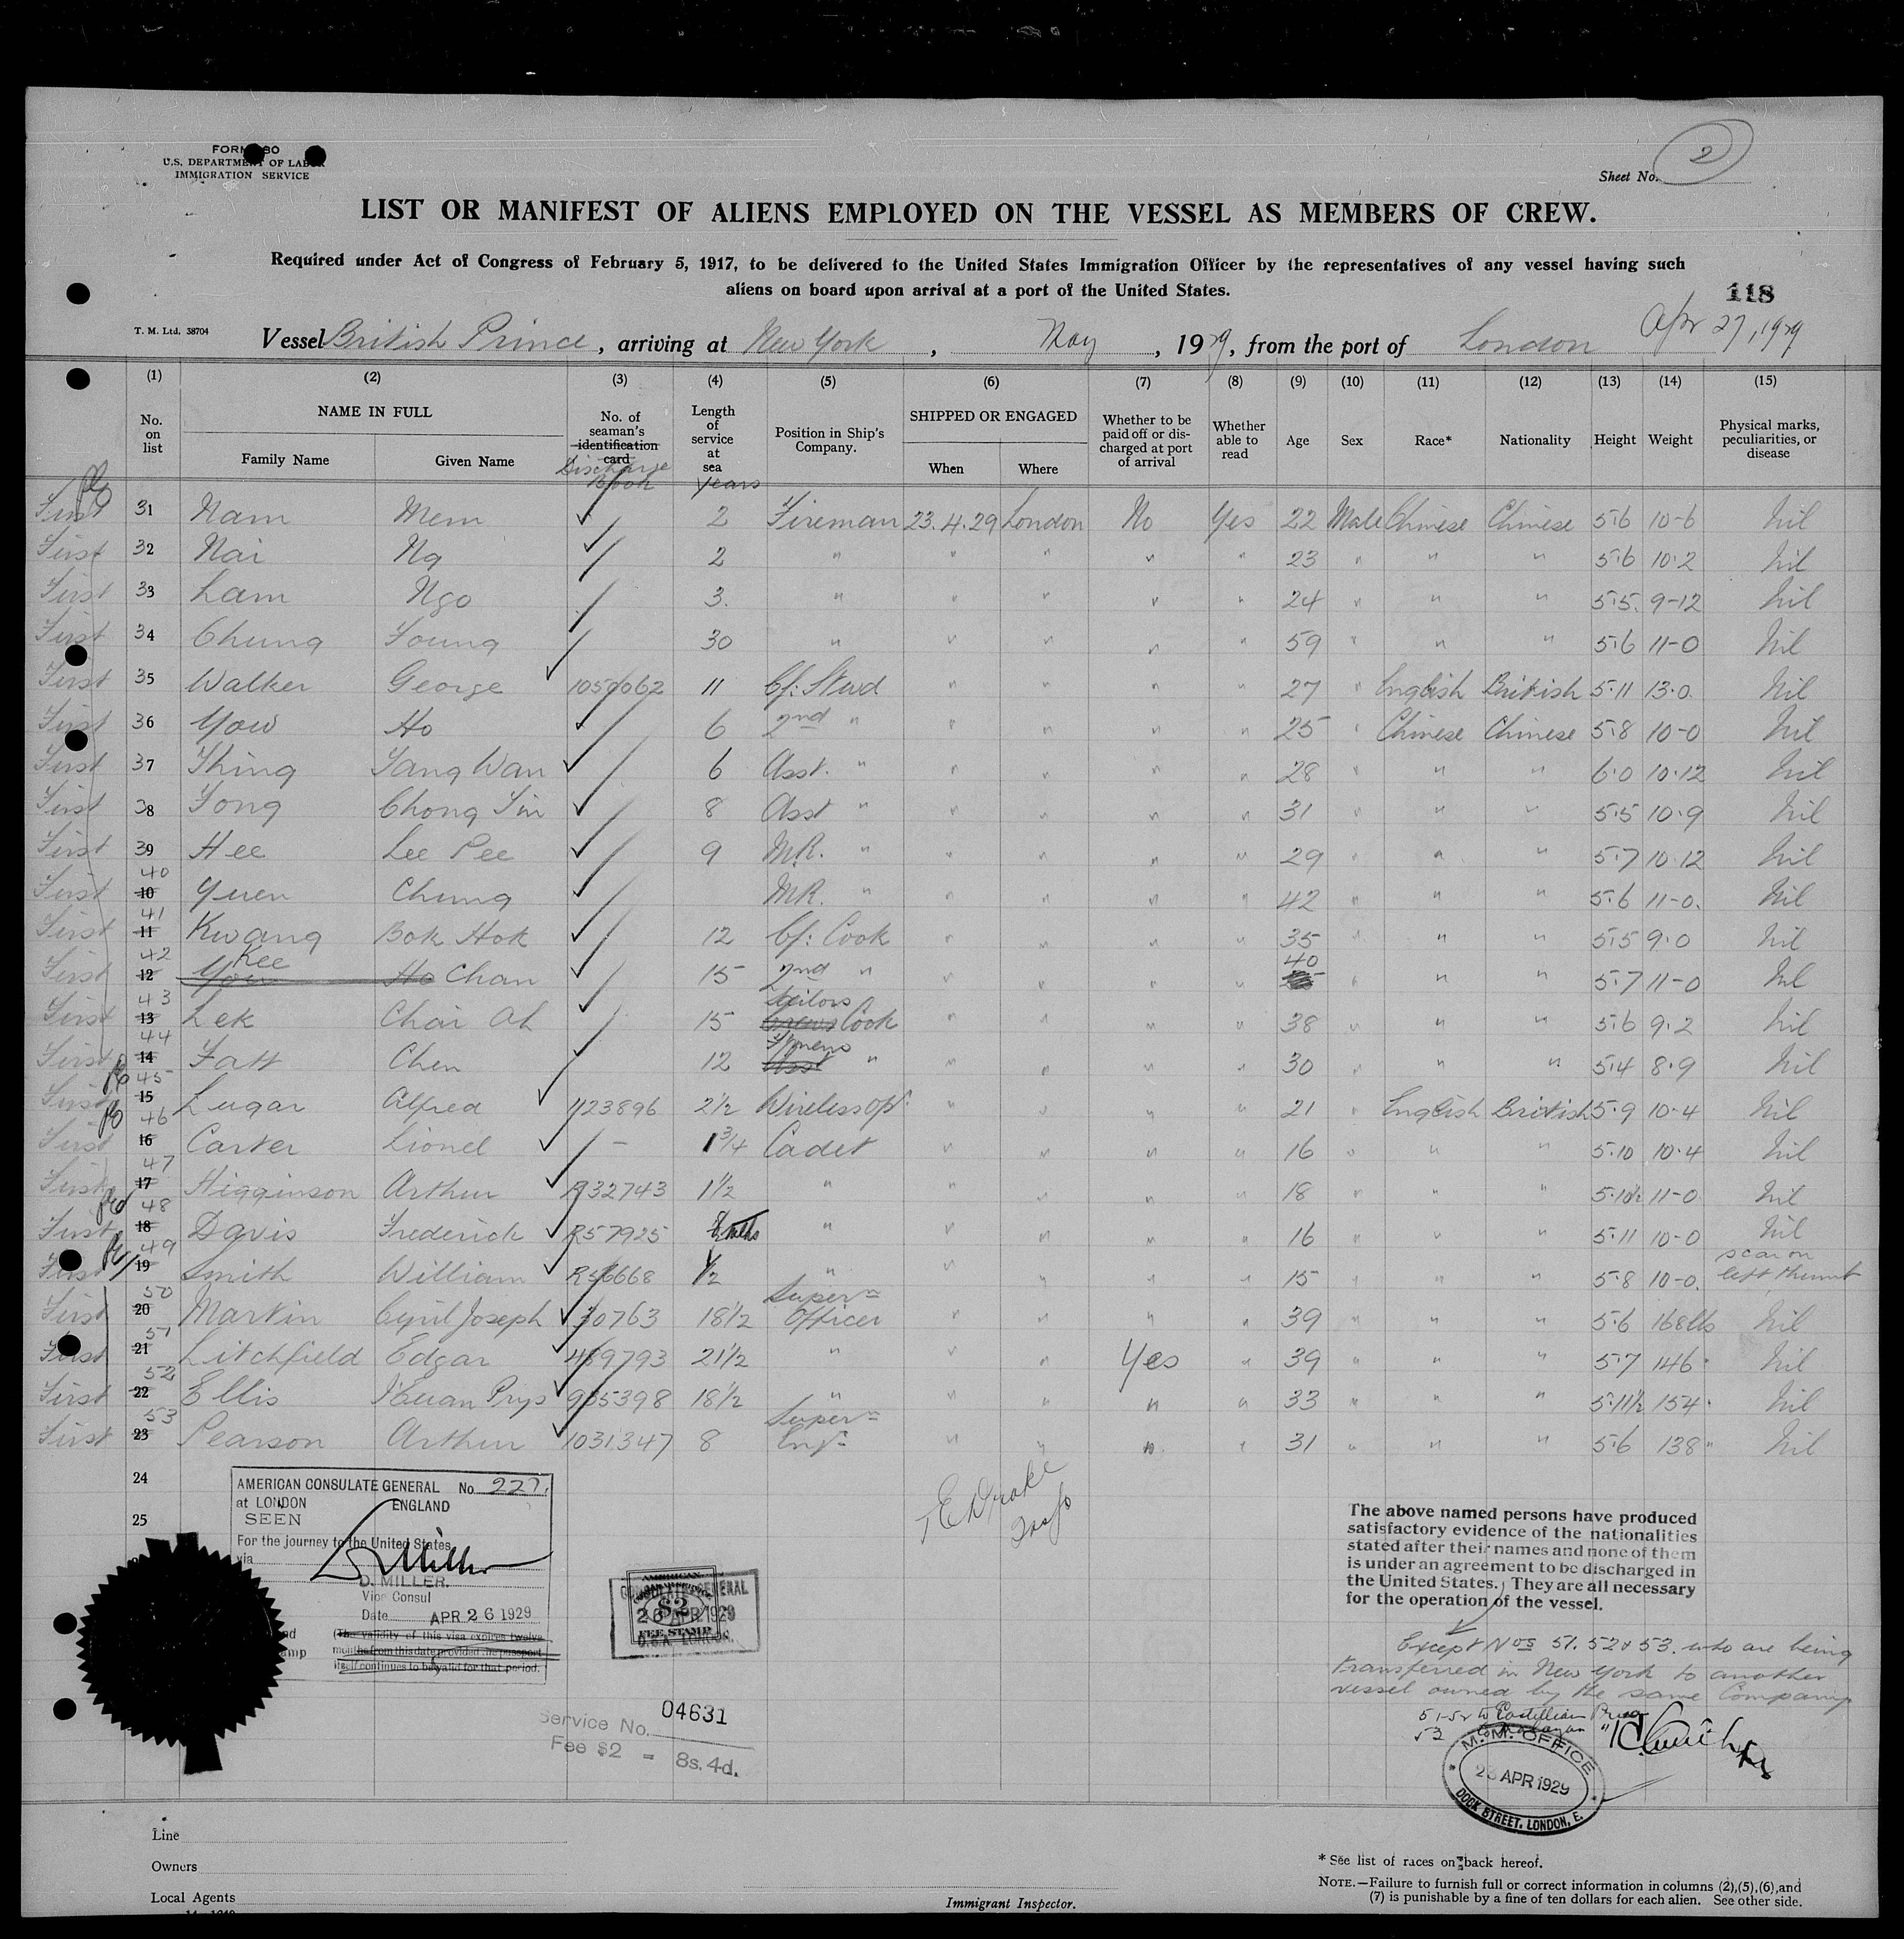 FORM 680
U.S. DEPARTMENT OF LABOR
IMMIGRATION SERVICE
Sheet No. 2
LIST OR MANIFEST OF ALIENS EMPLOYED ON THE VESSEL AS MEMBERS OF CREW.
Required under Act of Congress of February 5, 1917, to be delivered to the United States Immigration Officer by the representatives of any vessel having such
aliens on board upon arrival at a port of the United States.
118
T. M. Ltd. 38704
Vessel British Prince, arriving at New York, May, 1929, from the port of London Apr 27, 1929
(1) (2) (3) (4) (5) (6) (7) (8) (9) (10) (11) (12) (13) (14) (15)
No. on list NAME IN FULL Family Name Given Name No. of seaman's identification card Discharge Book Length of service at sea Years Position in Ship's Company. SHIPPED OR ENGAGED When Where Whether to be paid off or discharged at port of arrival Whether able to read Age Sex Race* Nationality Height Weight Physical marks, peculiarities, or disease
First 31 Nam Mem 2 Fireman 23.4.29 London No Yes 22 Male Chinese Chinese 5·6 10-6 Nil
First 32 Nai Ng 2 " " " " " 23 " " " 5·6 10·2 Nil
First 33 Lam Ngo 3 " " " " " 24 " " " 5·5 9-12 Nil
First 34 Chung Foung 30 " " " " " 59 " " " 5·6 11-0 Nil
First 35 Walker George 1050062 11 Cf: Stwd " " " " 27 " English British 5·11 13·0 Nil
First 36 Yow Ho 6 2nd " " " " " 25 " Chinese Chinese 5·8 10-0 Nil
First 37 Thing Tang Wan 6 Asst. " " " " " 28 " " " 6·0 10·12 Nil
First 38 Fong Chong Sin 8 Asst " " " " " 31 " " " 5·5 10·9 Nil
First 39 Hee Lee Pee 9 M.R. " " " " " 29 " " " 5·7 10·12 Nil
First 40 10 Yuen Chung M.R. " " " " " 42 " " " 5·6 11-0. Nil
First 41 11 Kwang Bok Hok 12 Cf: Cook " " " " 35 " " " 5·5 9·0 Nil
First 42 12 Yow Kee Ho Chan 15 2nd " " " " " 40 " " " 5·7 11-0 Nil
First 43 13 Lek Chai Ah 15 Sailors Crews Cook " " " " 38 " " " 5·6 9·2 Nil
First 44 14 Fatt Chen 12 Firemens Asst " " " " " 30 " " " 5·4 8·9 Nil
First 45 15 Lugar Alfred 1123896 2½ Wireless Opr. " " " " 21 " English British 5·9 10·4 Nil
First 46 16 Carter Lionel - 1¾ Cadet " " " " 16 " " " 5·10 10·4 Nil
First 47 17 Higginson Arthur R32743 1½ " " " " " 18 " " " 5·10½ 11-0 Nil
First 48 18 Davis Frederick R57925 " " " " " 16 " " " 5·11 10-0 Nil
First 49 19 Smith William R56668 ½ " " " " " 15 " " " 5·8 10-0. scar on left thumb
First 50 20 Martin Cyril Joseph 30763 18½ Supern Officer " " " " 39 " " " 5·6 168lbs Nil
First 51 21 Litchfield Edgar 469793 21½ " " " Yes " 39 " " " 5·7 146 " Nil
First 52 22 Ellis Ieuan Prys 905398 18½ " " " " " 33 " " " 5·11½ 154 " Nil
First 53 23 Pearson Arthur 1031347 8 Supern Engr " " " " 31 " " " 5·6 138 " Nil
24
25
AMERICAN CONSULATE GENERAL No. 227.
at LONDON ENGLAND
SEEN
For the journey to the United States
via
D. MILLER.
Vice Consul
Date APR 26 1929
(The validity of this visa expires twelve
months from this date provided the passport
itself continues to be valid for that period.)
AMERICAN
CONSULATE GENERAL
$2
26 APR 1929
FEE STAMP
U.S.A. LONDON.
Service No. 04631
Fee $2 = 8s. 4d.
The above named persons have produced
satisfactory evidence of the nationalities
stated after their names and none of them
is under an agreement to be discharged in
the United States. They are all necessary
for the operation of the vessel.
Except Nos 51. 52 & 53. who are being
transferred in New York to another
vessel owned by the same Company
51-52 to Castillian Prince
53 to Malayan "
M.M. OFFICE
APR 1929
DOCK STREET, LONDON, E.
Line
Owners
Local Agents
Immigrant Inspector.
* See list of races on back hereof.
NOTE.—Failure to furnish full or correct information in columns (2),(5),(6),and
(7) is punishable by a fine of ten dollars for each alien. See other side.